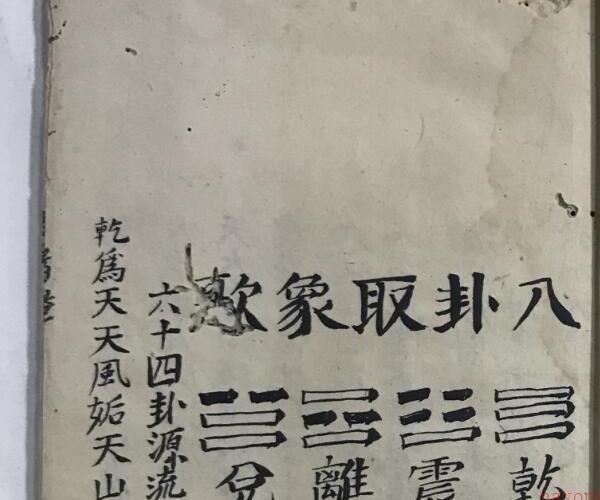 八卦取象歌
乾
震
離
兌
六十四卦源流
乾爲天天風姤天山